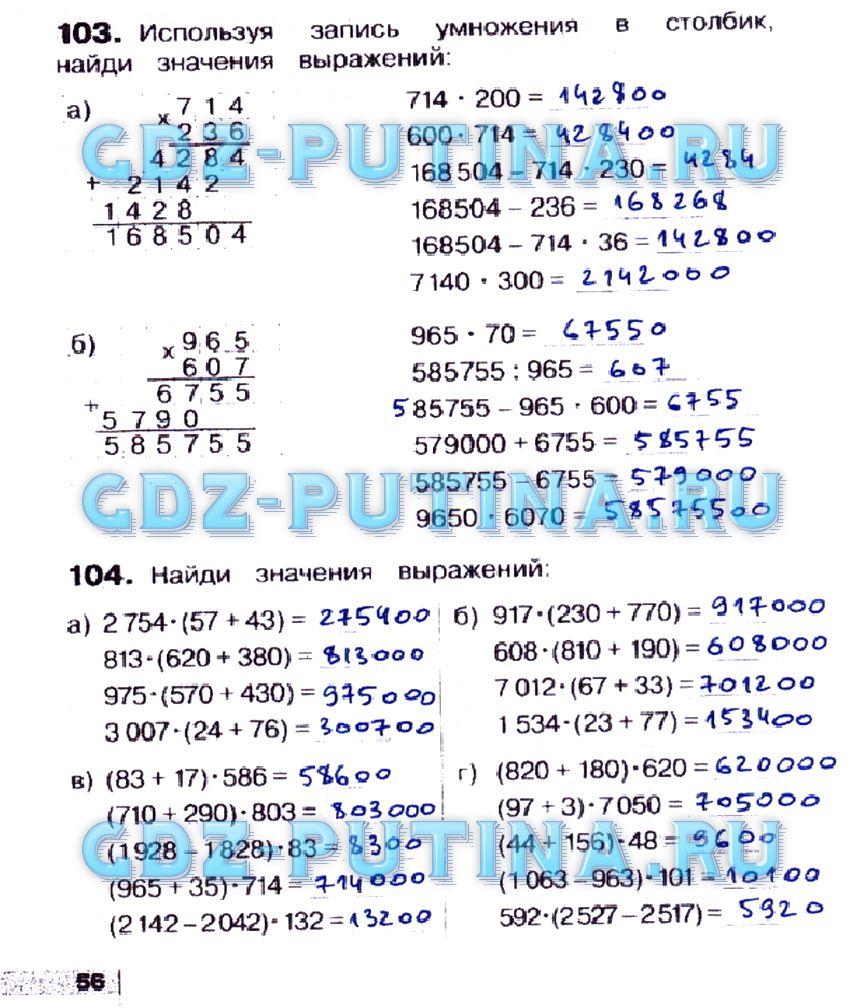 103. Используя запись умножения в столбик,
найди значения выражений:
а)
× 7 1 4
2 3 6
4 2 8 4
+ 2 1 4 2
1 4 2 8
1 6 8 5 0 4
714 · 200 = 142800
600 · 714 = 428400
168 504 – 714 · 230 = 4284
168504 – 236 = 168268
168504 – 714 · 36 = 142800
7 140 · 300 = 2142000
б)
× 9 6 5
6 0 7
6 7 5 5
+ 5 7 9 0
5 8 5 7 5 5
965 · 70 = 67550
585755 : 965 = 607
585755 – 965 · 600 = 6755
579000 + 6755 = 585755
585755 – 6755 = 579000
9650 · 6070 = 58575500
GDZ-PUTINA.RU
GDZ-PUTINA.RU
104. Найди значения выражений:
а) 2 754·(57 + 43) = 275400
813·(620 + 380) = 813000
975·(570 + 430) = 975000
3 007·(24 + 76) = 300700
б) 917·(230 + 770) = 917000
608·(810 + 190) = 608000
7 012·(67 + 33) = 701200
1 534·(23 + 77) = 153400
в) (83 + 17)·586 = 58600
(710 + 290)·803 = 803000
(1 928 – 1 828)·83 = 8300
(965 + 35)·714 = 714000
(2 142 – 2 042)·132 = 13200
г) (820 + 180)·620 = 620000
(97 + 3)·7 050 = 705000
(44 + 156)·48 = 9600
(1 063 – 963)·101 = 10100
592·(2 527 – 2 517) = 5920
GDZ-PUTINA.RU
56